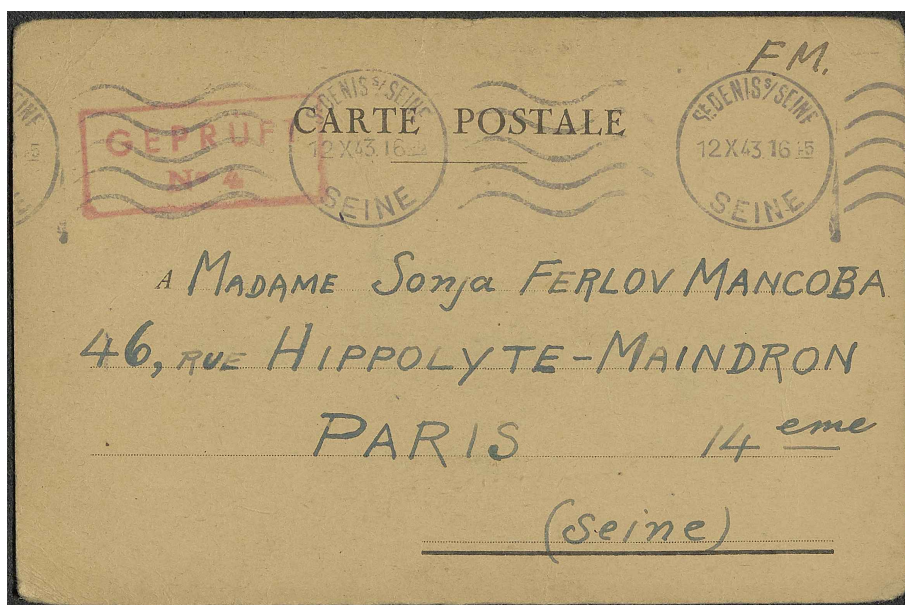 F.M.
GEPRÜFT
No 4
CARTE POSTALE
ST DENIS S/SEINE
12 X 43. 16
SEINE
ST DENIS S/SEINE
12 X 43. 16 45
SEINE
A MADAME Sonja FERLOV MANCOBA
46, RUE HIPPOLYTE-MAINDRON
PARIS 14 eme
(Seine)